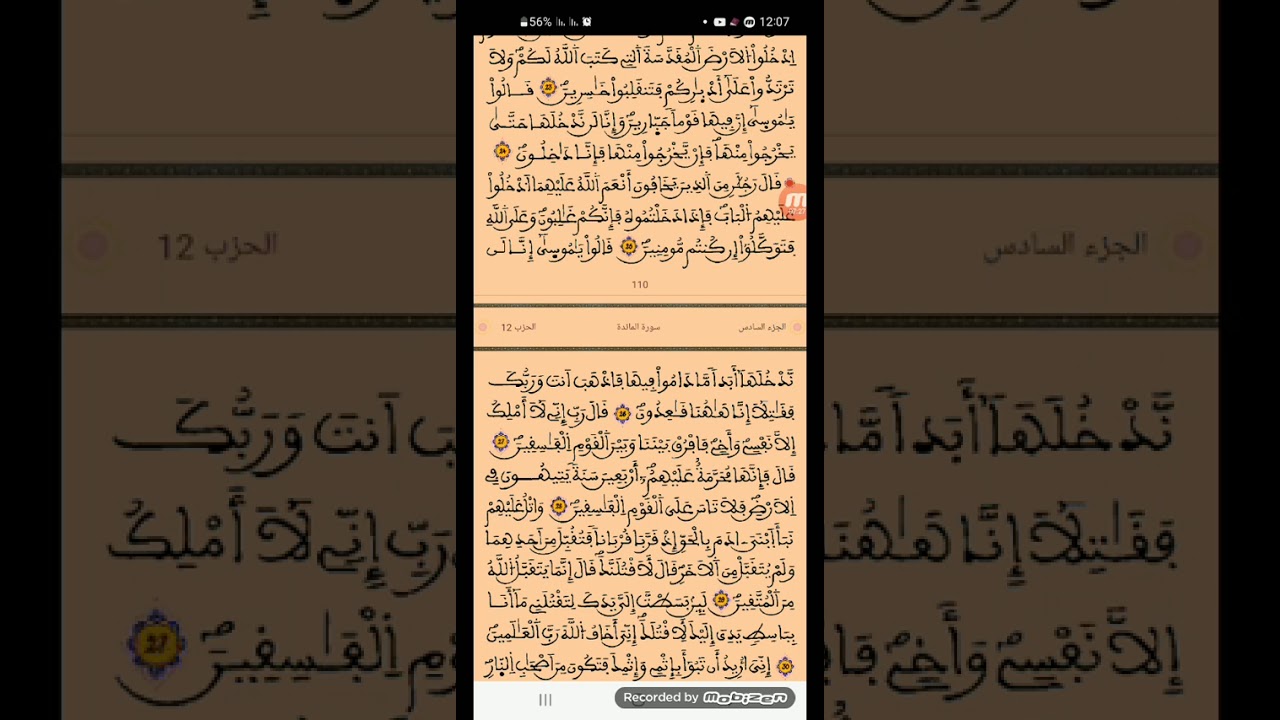 56%
12:07
اِدْخُلُواْ اُلَارْضَ اَلْمُقَدَّسَةَ اَلتِے كَتَبَ اَللَّهُ لَكُمْ وَلَا
تَرْتَدُّواْ عَلَىٰٓ أَدْبٰرِكُمْ فَتَنقَلِبُواْ خَٰسِرِينَ 23 قَالُواْ
يَٰمُوسىٰٓ إِنَّ فِيهَا قَوْماً جَبّ۪ارِينَ وَإِنَّا لَن نَّدْخُلَهَا حَتَّىٰ
يَخْرُجُواْ مِنْهَا فَإِنْ يَّخْرُجُواْ مِنْهَا فَإِنَّا دَٰخِلُونَ 24
قَالَ رَجُلَٰنِ مِنَ اَلذِينَ يَخَافُونَ أَنْعَمَ اَللَّهُ عَلَيْهِمَا اَدْخُلُواْ
عَلَيْهِمُ اُلْبَابَ فَإِذَا دَخَلْتُمُوهُ فَإِنَّكُمْ غَٰلِبُونَ وَعَلَى اَللَّهِ
فَتَوَكَّلُوٓاْ إِن كُنتُم مُّومِنِينَ 25 قَالُواْ يَٰمُوسىٰٓ إِنَّا لَن
110
الجزء السادس
سورة المائدة
الحزب 12
نَّدْخُلَهَآ أَبَداً مَّا دَامُواْ فِيهَا فَاذْهَبَ اَنتَ وَرَبُّكَ
فَقَٰتِلَآ إِنَّا هَٰهُنَا قَٰعِدُونَ 26 قَالَ رَبِّ إِنِّے لَآ أَمْلِكُ
إِلَّا نَفْسِے وَأَخِے فَافْرُقْ بَيْنَنَا وَبَيْنَ اَلْقَوْمِ اِلْفَٰسِقِينَ 27
قَالَ فَإِنَّهَا مُحَرَّمَةٌ عَلَيْهِمُۥٓ أَرْبَعِينَ سَنَةً يَتِيهُونَ فِے
اِلَارْضِ فَلَا تَاسَ عَلَى اَلْقَوْمِ اِلْفَٰسِقِينَ 28 وَاتْلُ عَلَيْهِمْ
نَبَأَ اَبْنَيَ ادَمَ بِالْحَقِّ إِذْ قَرَّبَا قُرْبَاناً فَتُقُبِّلَ مِنَ اَحَدِهِمَا
وَلَمْ يُتَقَبَّلْ مِنَ اَلَاخَرِ قَالَ لَأَقْتُلَنَّكَ قَالَ إِنَّمَا يَتَقَبَّلُ اُللَّهُ
مِنَ اَلْمُتَّقِينَ 29 لَئِنۢ بَسَطتَّ إِلَيَّ يَدَكَ لِتَقْتُلَنِے مَآ أَنَا
بِبَاسِطٍ يَدِيَ إِلَيْكَ لَأَقْتُلَكَ إِنِّيَ أَخَافُ اُللَّهَ رَبَّ اَلْعَٰلَمِينَ
30 إِنِّيَ أُرِيدُ أَن تَبُوٓأَ بِإِثْمِے وَإِثْمِكَ فَتَكُونَ مِنَ اَصْحَٰبِ اِلنّ۪ارِ
Recorded by MOBIZEN